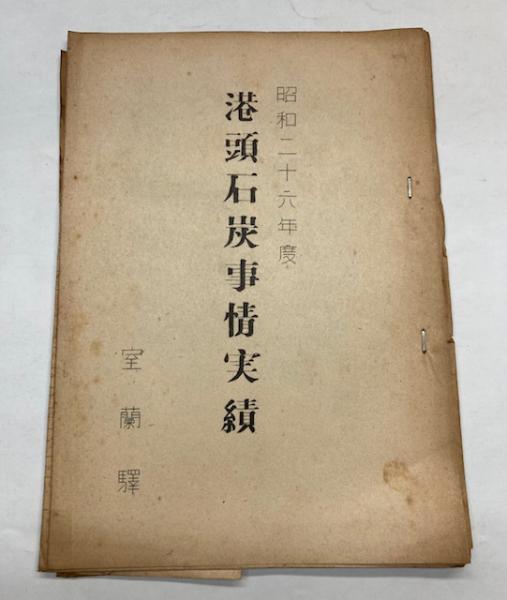 昭和二十六年度
港頭石炭事情実績
室蘭驛